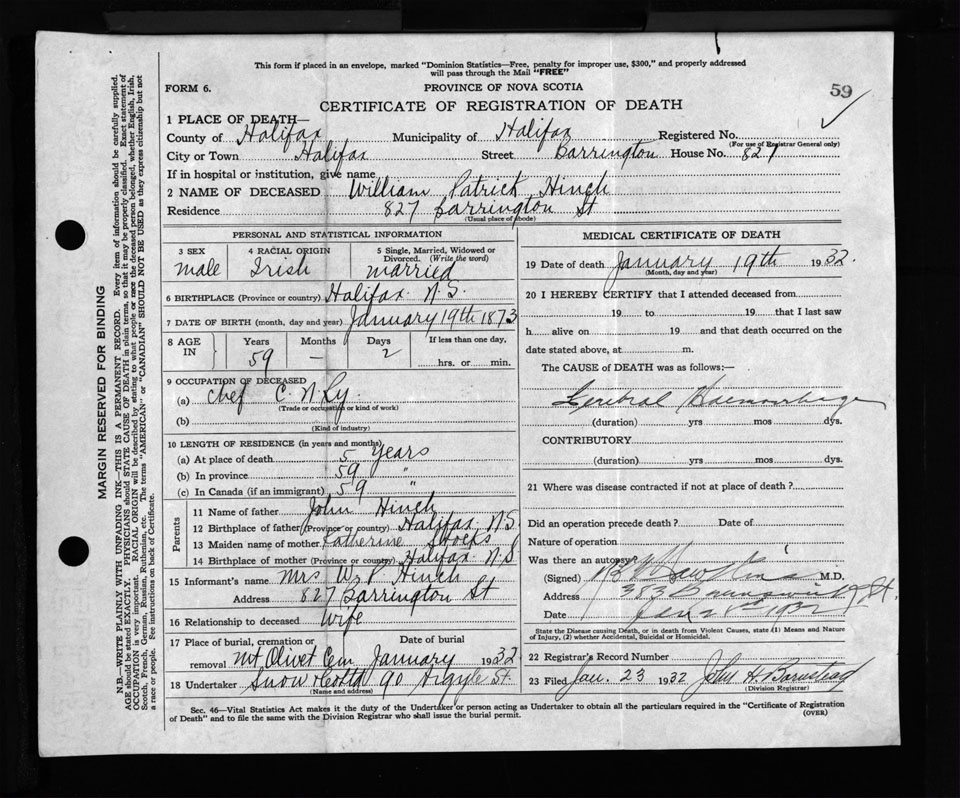 This form if placed in an envelope, marked "Dominion Statistics—Free, penalty for improper use, $300," and properly addressed
will pass through the Mail "FREE"
FORM 6.
PROVINCE OF NOVA SCOTIA
59
CERTIFICATE OF REGISTRATION OF DEATH
1 PLACE OF DEATH—
County of Halifax Municipality of Halifax Registered No.
(For use of Registrar General only)
City or Town Halifax Street Barrington House No. 827
If in hospital or institution, give name
2 NAME OF DECEASED William Patrick Hinch
Residence 827 Barrington St
(Usual place of abode)
PERSONAL AND STATISTICAL INFORMATION
3 SEX male
4 RACIAL ORIGIN Irish
5 Single, Married, Widowed or Divorced. (Write the word) married
6 BIRTHPLACE (Province or country) Halifax N.S.
7 DATE OF BIRTH (month, day and year) January 19th 1873
8 AGE IN Years 59 Months — Days 2 If less than one day, hrs. or min.
9 OCCUPATION OF DECEASED
(a) Chef C. N. Ry.
(Trade or occupation or kind of work)
(b)
(Kind of industry)
10 LENGTH OF RESIDENCE (in years and months)
(a) At place of death 5 years
(b) In province 59 "
(c) In Canada (if an immigrant) 59 "
Parents
11 Name of father John Hinch
12 Birthplace of father (Province or country) Halifax, N.S.
13 Maiden name of mother Katherine
14 Birthplace of mother (Province or country) Halifax N.S
15 Informant's name Mrs W. P Hinch
Address 827 Barrington St
16 Relationship to deceased Wife
17 Place of burial, cremation or removal Mt. Olivet Cem Date of burial January 1932
18 Undertaker Snow & Co Ltd 90 Argyle St.
(Name and address)
MEDICAL CERTIFICATE OF DEATH
19 Date of death January 19th 1932.
(Month, day and year)
20 I HEREBY CERTIFY that I attended deceased from
19 to 19 that I last saw
h alive on 19 and that death occurred on the
date stated above, at m.
The CAUSE of DEATH was as follows:—
Cerebral Haemorrhage
(duration) yrs mos dys.
CONTRIBUTORY
(duration) yrs mos dys.
21 Where was disease contracted if not at place of death?
Did an operation precede death? Date of
Nature of operation
Was there an autopsy
(Signed) M.D.
Address 353 Brunswick St.
Date Jan 21st 1932
State the Disease causing Death, or in death from Violent Causes, state (1) Means and Nature
of Injury, (2) whether Accidental, Suicidal or Homicidal.
22 Registrar's Record Number
23 Filed Jan. 23 1932 John H. Barnstead
(Division Registrar)
Sec. 46—Vital Statistics Act makes it the duty of the Undertaker or person acting as Undertaker to obtain all the particulars required in the "Certificate of Registration
of Death" and to file the same with the Division Registrar who shall issue the burial permit.
(OVER)
MARGIN RESERVED FOR BINDING
N.B.—WRITE PLAINLY WITH UNFADING INK—THIS IS A PERMANENT RECORD. Every item of information should be carefully supplied.
AGE should be stated EXACTLY. PHYSICIANS should STATE CAUSE OF DEATH in plain terms, so that it may be properly classified. Exact statement of
OCCUPATION is very important. RACIAL ORIGIN will be described by stating to what people or race the deceased person belonged, whether English, Irish,
Scotch, French, German, Russian, Ruthenian, etc. The terms "AMERICAN" or "CANADIAN" SHOULD NOT BE USED as they express citizenship but not
a race or people. See instructions on back of Certificate.